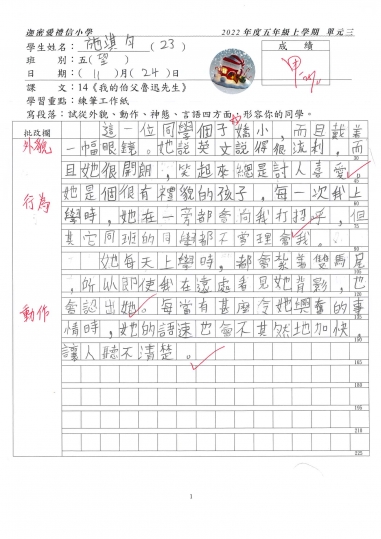 迦密愛禮信小學 2022年度五年級上學期 單元三
學生姓名：施淇月(23) 成績
班別：五(望) 甲
日期：(11)月(24)日
課文：14《我的伯父魯迅先生》
學習重點：練筆工作紙
寫段落：試從外貌、動作、神態、言語四方面，形容你的同學。
批改欄
外貌
行為
動作
這一位同學個子嬌小，而且戴着
一幅眼鏡。她說英文說得很流利，而
且她很開朗，笑起來總是討人喜愛。
她是個很有禮貌的孩子，每一次我上
學時，她在一旁都會向我打招乎，但
其它同班的同學都不會理會我。
她每天上學時，都會紮着雙馬尾
，所以即使我在遠處看見她背影，也
會認出她。每當有甚麼令她興奮的事
情時，她的語速也會不其然地加快
讓人聽不清楚。
15
30
45
60
75
90
105
120
135
150
165
180
195
210
225
1